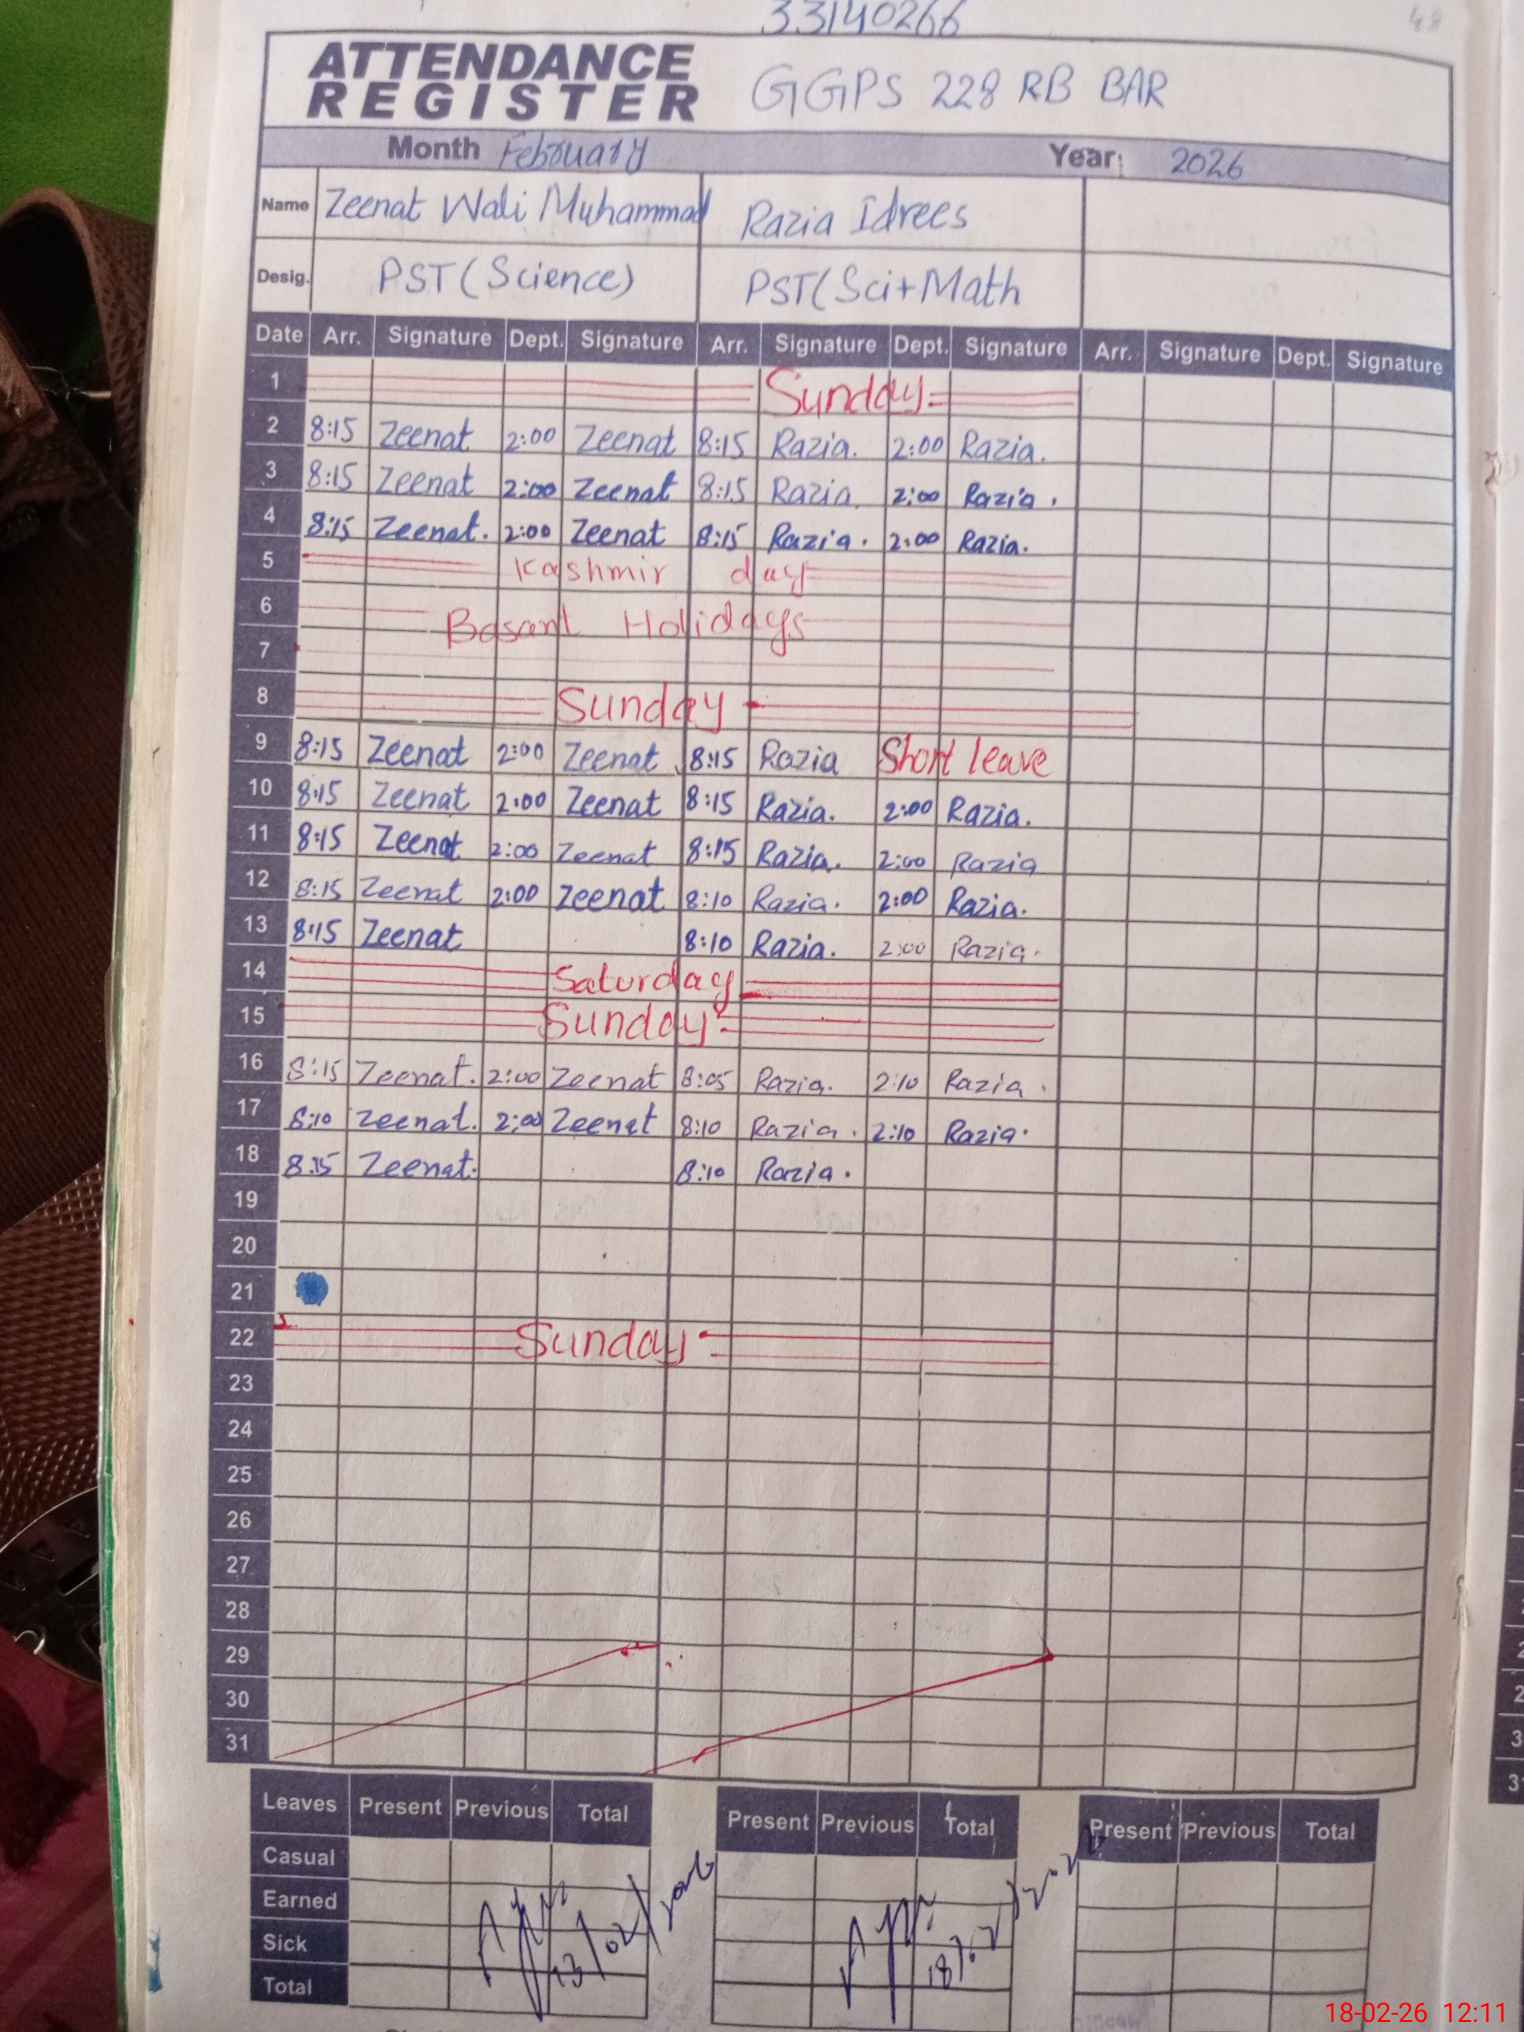 33140266
48
ATTENDANCE REGISTER GGPS 228 RB BAR
Month February Year: 2026
Name Zeenat Wali Muhammad Razia Idrees
Desig. PST (Science) PST (Sci+Math
Date Arr. Signature Dept. Signature Arr. Signature Dept. Signature Arr. Signature Dept. Signature
1 Sunday
2 8:15 Zeenat 2:00 Zeenat 8:15 Razia. 2:00 Razia.
3 8:15 Zeenat 2:00 Zeenat 8:15 Razia 2:00 Razia.
4 8:15 Zeenat. 2:00 Zeenat 8:15 Razia. 2:00 Razia.
5 Kashmir day
6 Basant Holidays
7
8 Sunday
9 8:15 Zeenat 2:00 Zeenat 8:15 Razia Short leave
10 8:15 Zeenat 2:00 Zeenat 8:15 Razia. 2:00 Razia.
11 8:15 Zeenat 2:00 Zeenat 8:15 Razia. 2:00 Razia
12 8:15 Zeenat 2:00 Zeenat 8:10 Razia. 2:00 Razia.
13 8:15 Zeenat 8:10 Razia. 2:00 Razia.
14 Saturday
15 Sunday
16 8:15 Zeenat. 2:00 Zeenat 8:05 Razia. 2:10 Razia.
17 8:10 Zeenat. 2:00 Zeenat 8:10 Razia. 2:10 Razia.
18 8:15 Zeenat. 8:10 Razia.
19
20
21
22 Sunday
23
24
25
26
27
28
29
30
31
Leaves Present Previous Total Present Previous Total Present Previous Total
Casual
Earned
Sick
Total
13/02/2026
18-02-26 12:11